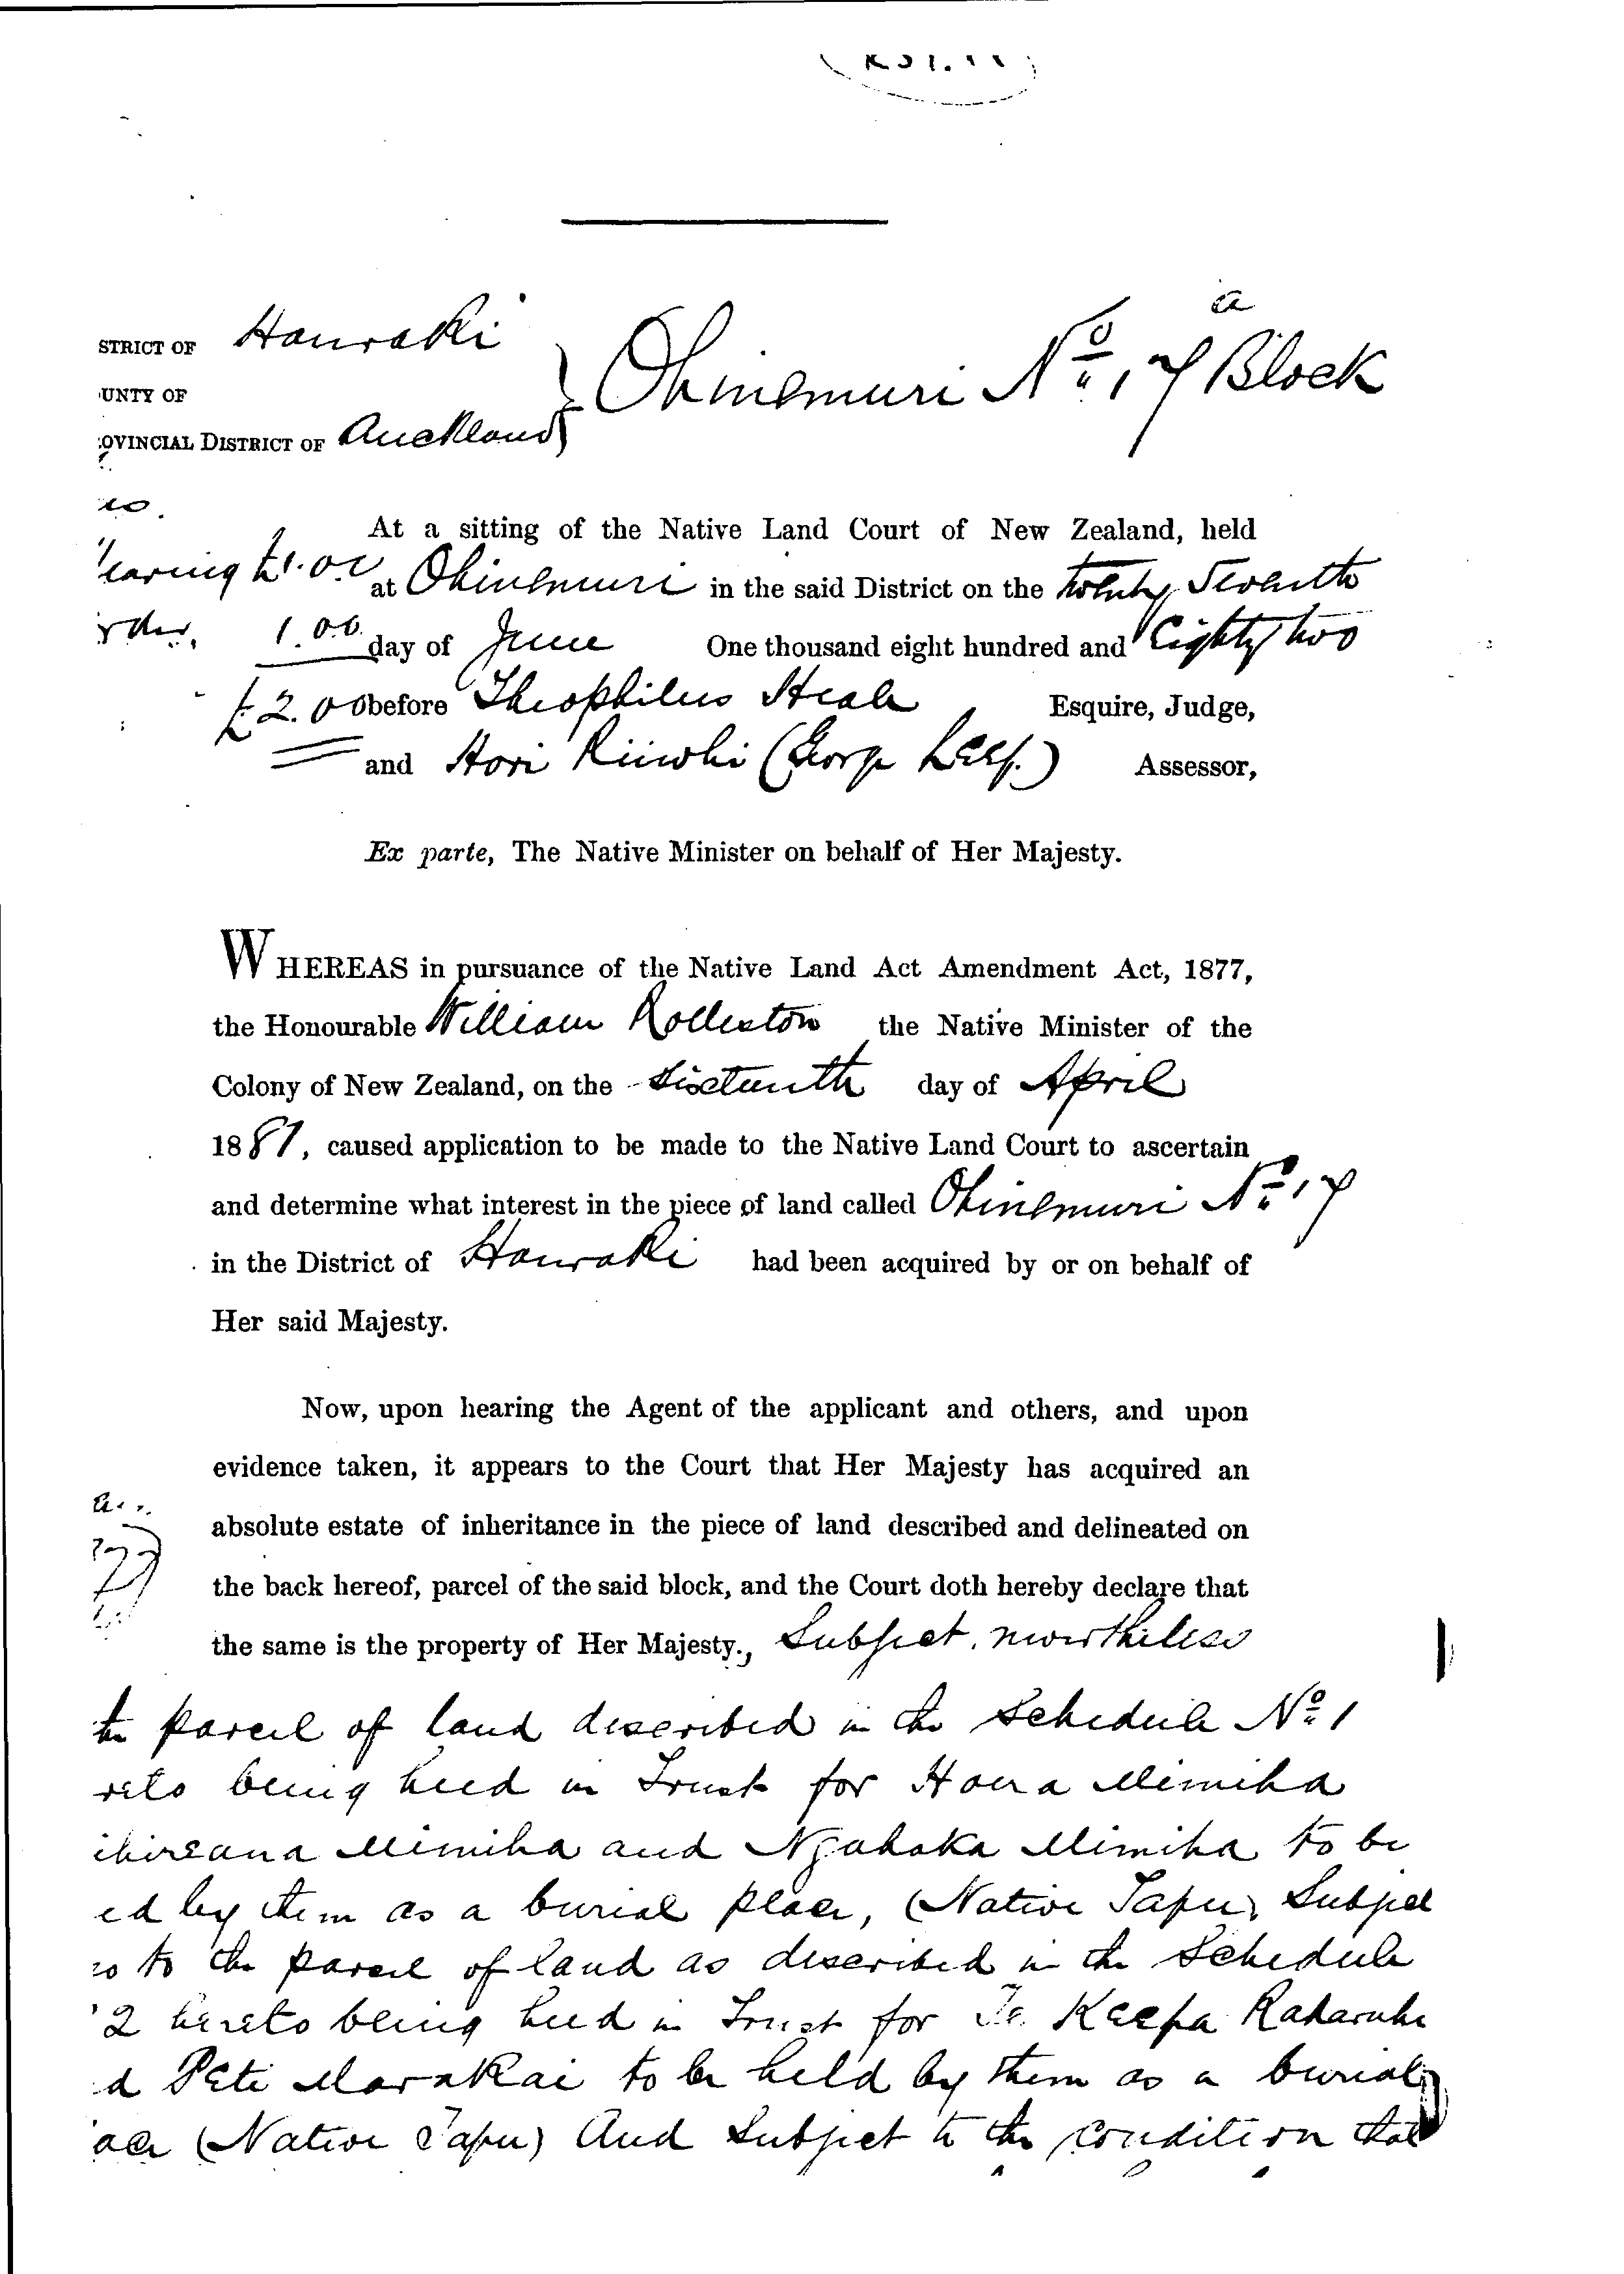 STRICT OF Hauraki
UNTY OF
OVINCIAL DISTRICT OF Auckland
Ohinemuri No. 17 a Block
At a sitting of the Native Land Court of New Zealand, held
earing £1.0.0 at Ohinemuri in the said District on the twenty Seventh
rder. 1.0.0. day of June One thousand eight hundred and Eighty two
£2.0.0 before Theophilus Heale Esquire, Judge,
and Hori Riiwhi (George Leaf.) Assessor,
Ex parte, The Native Minister on behalf of Her Majesty.
WHEREAS in pursuance of the Native Land Act Amendment Act, 1877,
the Honourable William Rolleston the Native Minister of the
Colony of New Zealand, on the Sixteenth day of April
1881, caused application to be made to the Native Land Court to ascertain
and determine what interest in the piece of land called Ohinemuri No. 17
in the District of Hauraki had been acquired by or on behalf of
Her said Majesty.
Now, upon hearing the Agent of the applicant and others, and upon
evidence taken, it appears to the Court that Her Majesty has acquired an
absolute estate of inheritance in the piece of land described and delineated on
the back hereof, parcel of the said block, and the Court doth hereby declare that
the same is the property of Her Majesty., Subject, nevertheless
to parcel of land described in the Schedule No. 1
reto being held in Trust for Hoera Mimiha
Mimiha and Ngahaka Mimiha to be
ed by them as a burial place, (Native Tapu) Subject
so to the parcel of land as described in the Schedule
2 hereto being held in Trust for Te Keepa Raharuhi
d Pete Marakai to be held by them as a burial
ace (Native Tapu) And Subject to the condition that